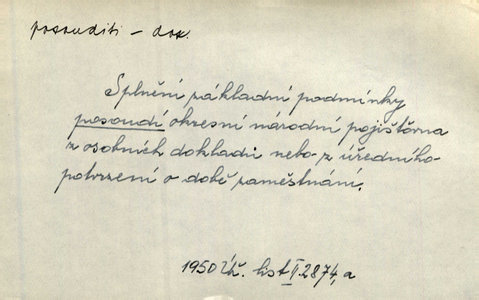 posouditi – dok.
Splnění základní podmínky
posoudí okresní národní pojišťovna
z osobních dokladů nebo z úředního
potvrzení o době zaměstnání.
1950 Úř. list II 2874, a